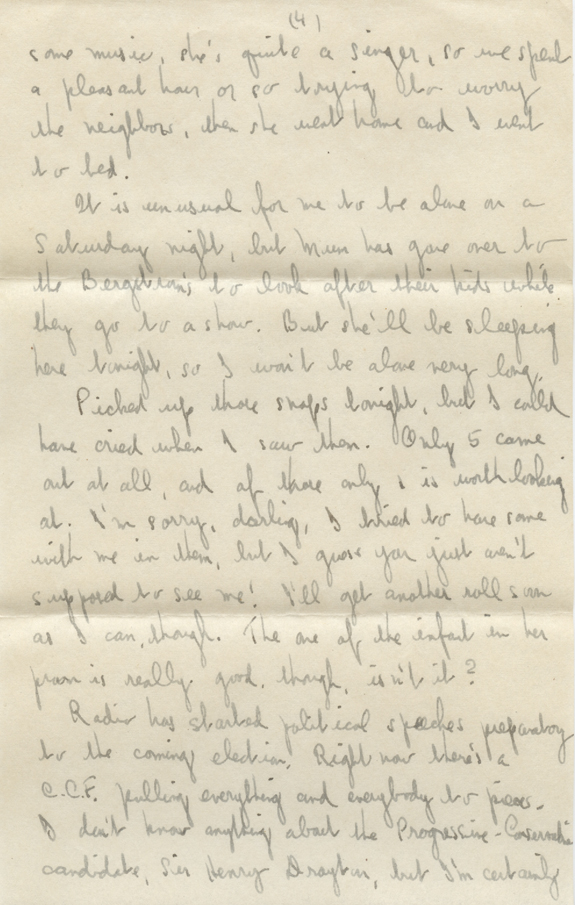 (4)
some music, she's quite a singer, so we spent
a pleasant hour or so trying to worry
the neighbors, then she went home and I went
to bed.
It is unusual for me to be alone on a
Saturday night, but Mum has gone over to
the Bergstrom's to look after their kids while
they go to a show. But she'll be sleeping
here tonight, so I won't be alone very long.
Picked up those snaps tonight, but I could
have cried when I saw them. Only 5 came
out at all, and of those only 1 is worth looking
at. I'm sorry, darling, I tried to have some
with me in them, but I guess you just aren't
supposed to see me! I'll get another roll soon
as I can, though. The one of the infant in her
pram is really good, though, isn't it?
Radio has started political speeches preparatory
to the coming election. Right now there's a
C.C.F. pulling everything and everybody to pieces.
I don't know anything about the Progressive-Conservative
candidate, Sir Henry Drayton, but I'm certainly